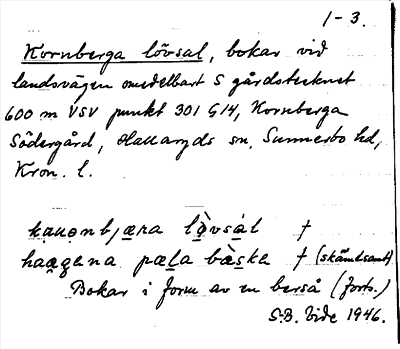 1-3.
Kornberga lövsal, bokar vid
landsvägen omedelbart S gårdstecknet
600 m VSV punkt 301 G14, Kornberga
Södergård, Hallaryds sn, Sunnerbo hd,
Kron. l.
lövsal †
pæla bæske † (skämtsamt)
Bokar i form av en berså (forts.)
S-B. Vide 1946.